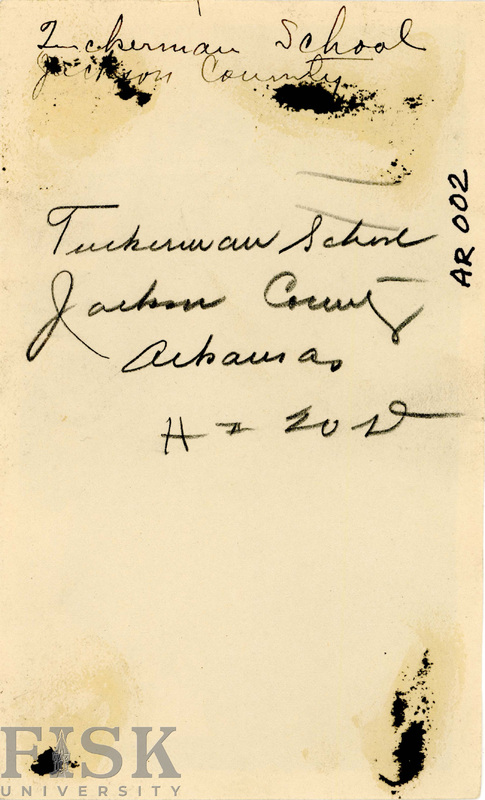 Tuckerman School
Jackson County
AR 002
Tuckerman School
Jackson County
Arkansas
FISK
UNIVERSITY